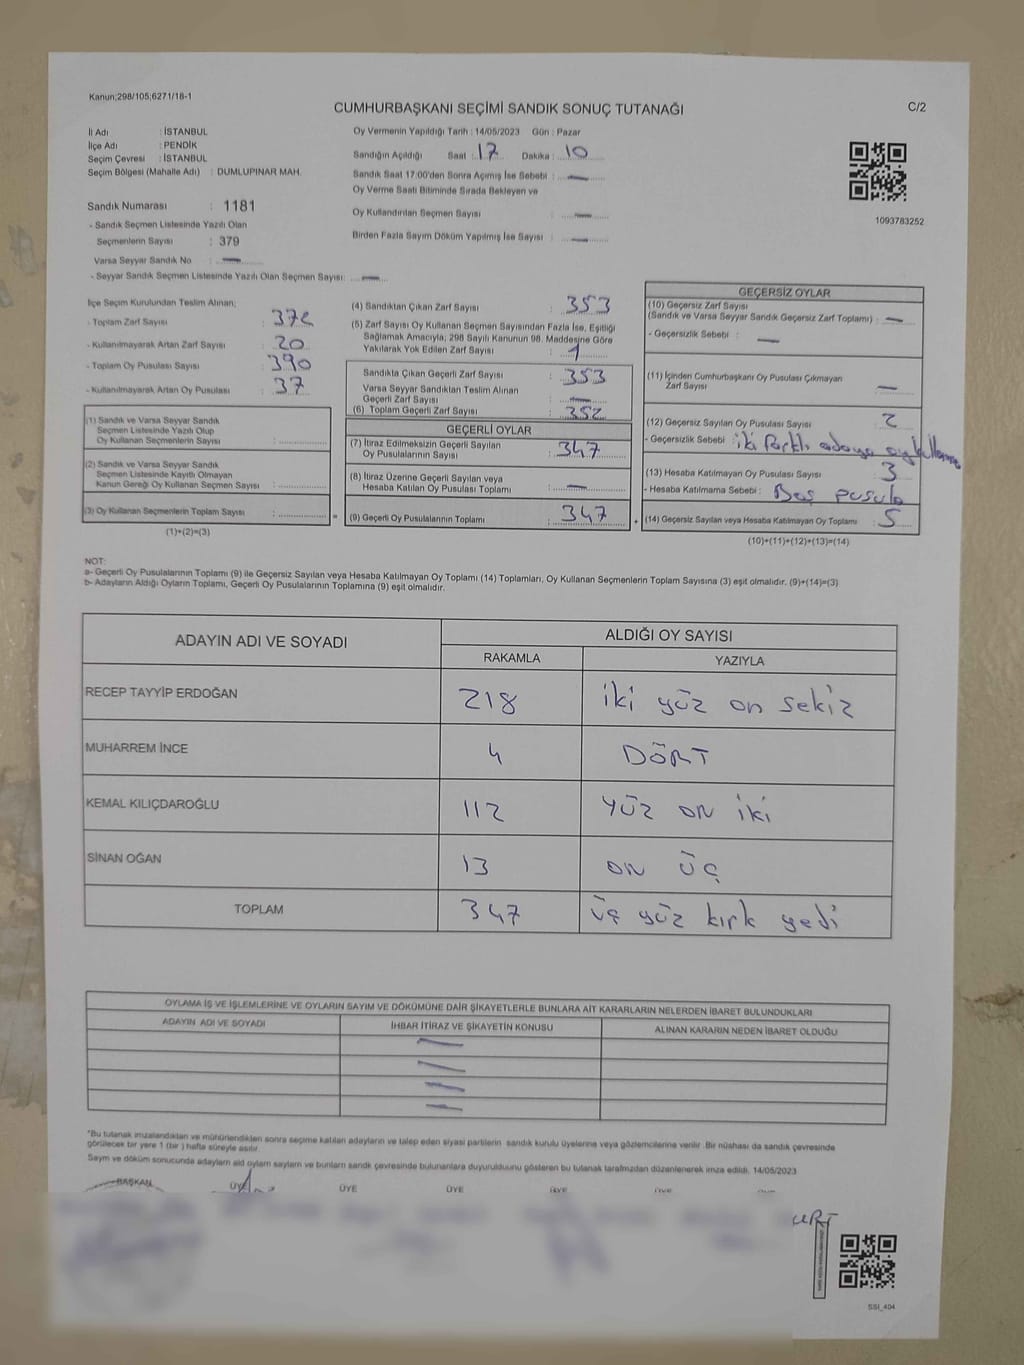 Kanun;298/105;6271/18-1
CUMHURBAŞKANI SEÇİMİ SANDIK SONUÇ TUTANAĞI
C/2
İl Adı : İSTANBUL
İlçe Adı : PENDİK
Seçim Çevresi : İSTANBUL
Seçim Bölgesi (Mahalle Adı) : DUMLUPINAR MAH.
Sandık Numarası : 1181
- Sandık Seçmen Listesinde Yazılı Olan
Seçmenlerin Sayısı : 379
Varsa Seyyar Sandık No : —
- Seyyar Sandık Seçmen Listesinde Yazılı Olan Seçmen Sayısı: —
Oy Vermenin Yapıldığı Tarih : 14/05/2023 Gün : Pazar
Sandığın Açıldığı Saat : 17 Dakika : 10
Sandık Saat 17:00'den Sonra Açımış İse Sebebi : —
Oy Verme Saati Bitiminde Sırada Bekleyen ve
Oy Kullandırılan Seçmen Sayısı : —
Birden Fazla Sayım Döküm Yapılmış İse Sayısı : —
1093783252
İlçe Seçim Kurulundan Teslim Alınan;
- Toplam Zarf Sayısı : 372
- Kullanılmayarak Artan Zarf Sayısı : 20
- Toplam Oy Pusulası Sayısı : 390
- Kullanılmayarak Artan Oy Pusulası : 37
(1) Sandık ve Varsa Seyyar Sandık
Seçmen Listesinde Yazılı Olup
Oy Kullanan Seçmenlerin Sayısı :
(2) Sandık ve Varsa Seyyar Sandık
Seçmen Listesinde Kayıtlı Olmayan
Kanun Gereği Oy Kullanan Seçmen Sayısı :
(3) Oy Kullanan Seçmenlerin Toplam Sayısı :
(1)+(2)=(3)
(4) Sandıktan Çıkan Zarf Sayısı : 353
(5) Zarf Sayısı Oy Kullanan Seçmen Sayısından Fazla İse, Eşitliği
Sağlamak Amacıyla; 298 Sayılı Kanunun 98. Maddesine Göre
Yakılarak Yok Edilen Zarf Sayısı : 1
Sandıkta Çıkan Geçerli Zarf Sayısı : 353
Varsa Seyyar Sandıktan Teslim Alınan
Geçerli Zarf Sayısı : —
(6) Toplam Geçerli Zarf Sayısı : 352
GEÇERLİ OYLAR
(7) İtiraz Edilmeksizin Geçerli Sayılan
Oy Pusulalarının Sayısı : 347
(8) İtiraz Üzerine Geçerli Sayılan veya
Hesaba Katılan Oy Pusulası Toplamı : —
= (9) Geçerli Oy Pusulalarının Toplamı : 347 +
GEÇERSİZ OYLAR
(10) Geçersiz Zarf Sayısı
(Sandık ve Varsa Seyyar Sandık Geçersiz Zarf Toplamı) : —
- Geçersizlik Sebebi : —
(11) İçinden Cumhurbaşkanı Oy Pusulası Çıkmayan
Zarf Sayısı —
(12) Geçersiz Sayılan Oy Pusulası Sayısı : 2
- Geçersizlik Sebebi : iki farklı adaya oy kullanma
(13) Hesaba Katılmayan Oy Pusulası Sayısı : 3
- Hesaba Katılmama Sebebi : Boş pusula
(14) Geçersiz Sayılan veya Hesaba Katılmayan Oy Toplamı : 5
(10)+(11)+(12)+(13)=(14)
NOT:
a- Geçerli Oy Pusulalarının Toplamı (9) ile Geçersiz Sayılan veya Hesaba Katılmayan Oy Toplamı (14) Toplamları, Oy Kullanan Seçmenlerin Toplam Sayısına (3) eşit olmalıdır. (9)+(14)=(3)
b- Adayların Aldığı Oyların Toplamı, Geçerli Oy Pusulalarının Toplamına (9) eşit olmalıdır.
ADAYIN ADI VE SOYADI
ALDIĞI OY SAYISI
RAKAMLA YAZIYLA
RECEP TAYYİP ERDOĞAN 218 iki yüz on sekiz
MUHARREM İNCE 4 DÖRT
KEMAL KILIÇDAROĞLU 112 YÜZ ON iKi
SİNAN OĞAN 13 ON ÜÇ
TOPLAM 347 üç yüz kırk yedi
OYLAMA İŞ VE İŞLEMLERİNE VE OYLARIN SAYIM VE DÖKÜMÜNE DAİR ŞİKAYETLERLE BUNLARA AİT KARARLARIN NELERDEN İBARET BULUNDUKLARI
ADAYIN ADI VE SOYADI İHBAR İTİRAZ VE ŞİKAYETİN KONUSU ALINAN KARARIN NEDEN İBARET OLDUĞU
—
—
—
—
"Bu tutanak imzalandıktan ve mühürlendikten sonra seçime katılan adayların ve talep eden siyasi partilerin sandık kurulu üyelerine veya gözlemcilerine verilir. Bir nüshası da sandık çevresinde
görülecek bir yere 1 (bir) hafta süreyle asılır.
Sayım ve döküm sonucunda adayların ald oyların sayıların ve bunların sandık çevresinde bulunanlara duyurulduunu gösteren bu tutanak tarafımızdan düzenlenerek imza edildi. 14/05/2023
BAŞKAN ÜYE ÜYE ÜYE ÜYE ÜYE
SSI_404